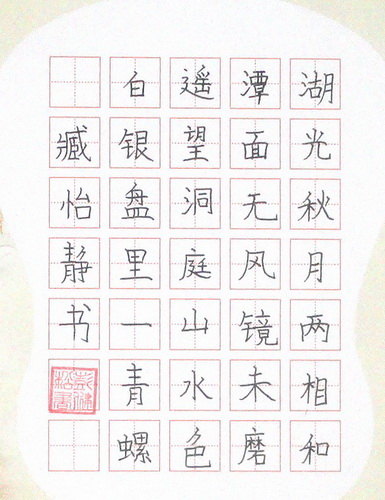 湖光秋月两相和
潭面无风镜未磨
遥望洞庭山水色
白银盘里一青螺
臧怡静书